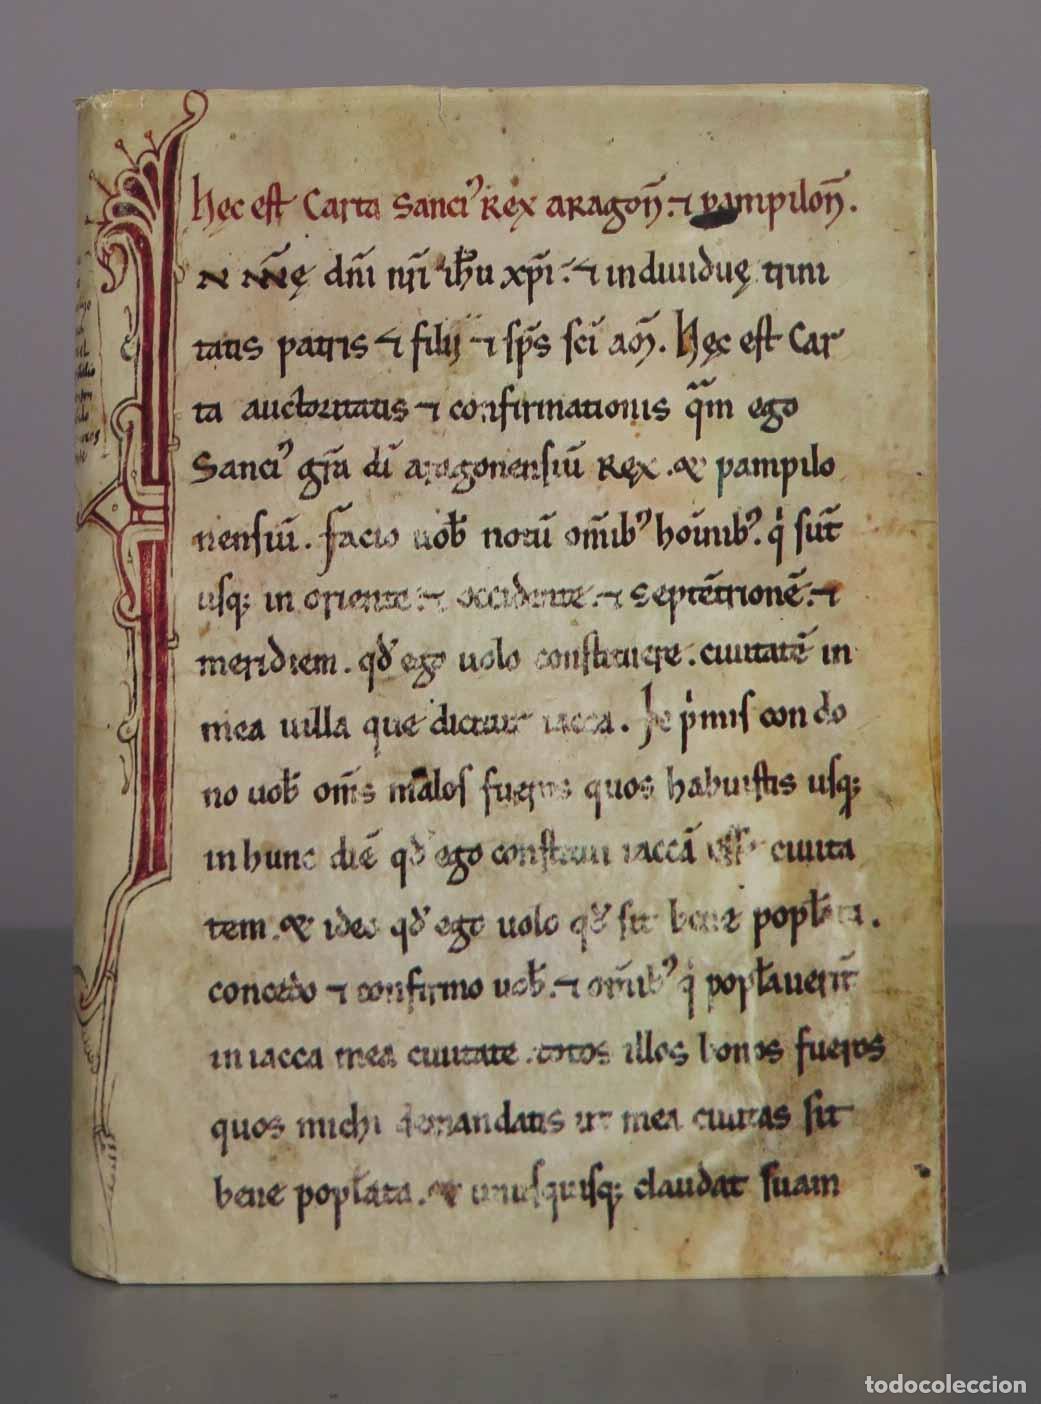 hęc est Carta Sanciꝰ Rex aragon̄. ⁊ pampilon̄.
In nn̄ę dnī nrī ih̄u xp̄i. ⁊ indiuiduę trini
tatis patris ⁊ filii ⁊ sp̄s sc̄i am̄. Hęc est Car
ta auctoritatis ⁊ confirmationis qm̄ ego
Sanciꝰ gr̄a dī aragonensiū Rex. & pampilo
nensiū. facio uob̄ notū om̄ibꝰ hoīnibꝰ. qi sūt
usq; in oriente. ⁊ occidente. ⁊ septētrionē. ⁊
meridiem. qd̄ ego uolo constituere. ciuitatē in
mea uilla que dicitur iacca. In pͥmis condo
no uob̄ om̄s malos fueros quos habuistis usq;
in hunc diē qd̄ ego constitui iaccā esse ciuita
tem. & ideo qd̄ ego uolo qd̄ sit bene popl̄ata.
concedo ⁊ confirmo uob̄. ⁊ om̄ibꝰ qi popl̄auerīt
in iacca mea ciuitate. totos illos bonos fueros
quos michi demandatis ut mea ciuitas sit
bene popl̄ata. & unusquisq; claudat suam
todocoleccion